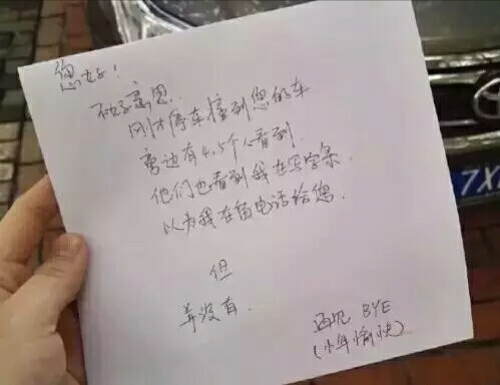 您好！
不好意思.
刚才停车撞到您的车
旁边有4.5个人看到.
他们也看到我在写字条
以为我在留电话给您.
但
并没有.
再见 BYE
(少年愉快)
7X